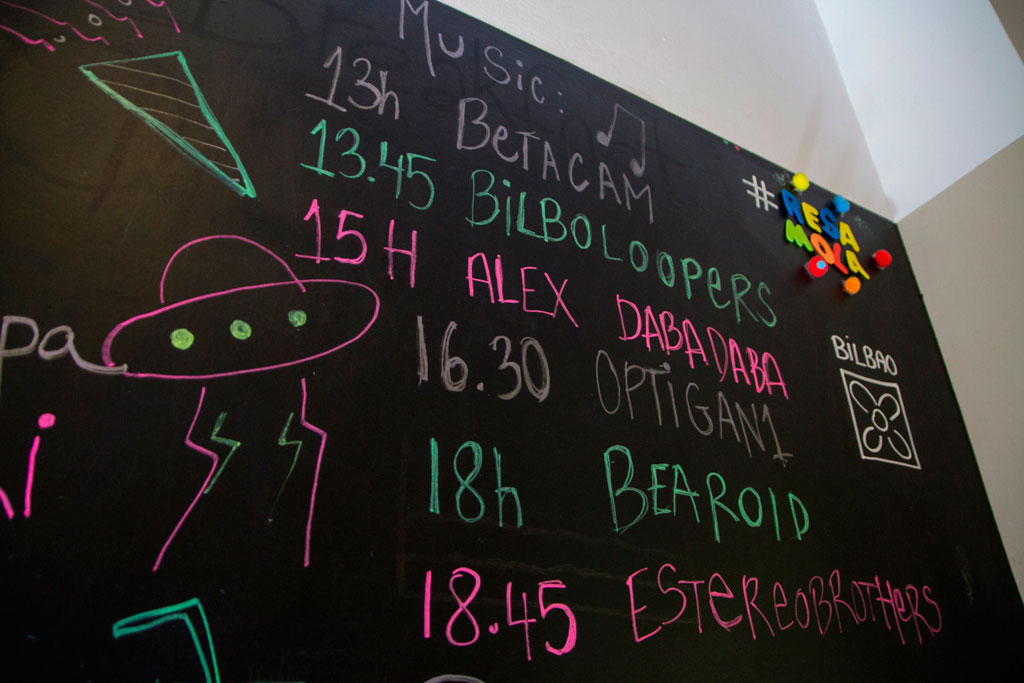 Music:
13h BETACAM
13.45 BiLBOLOOPERS
15H ALEX DABADABA
16.30 OPTIGAN1
18h BEAROID
18.45 ESTEREOBROTHERS
#RESA
MOLA
BiLBAO
pa
i